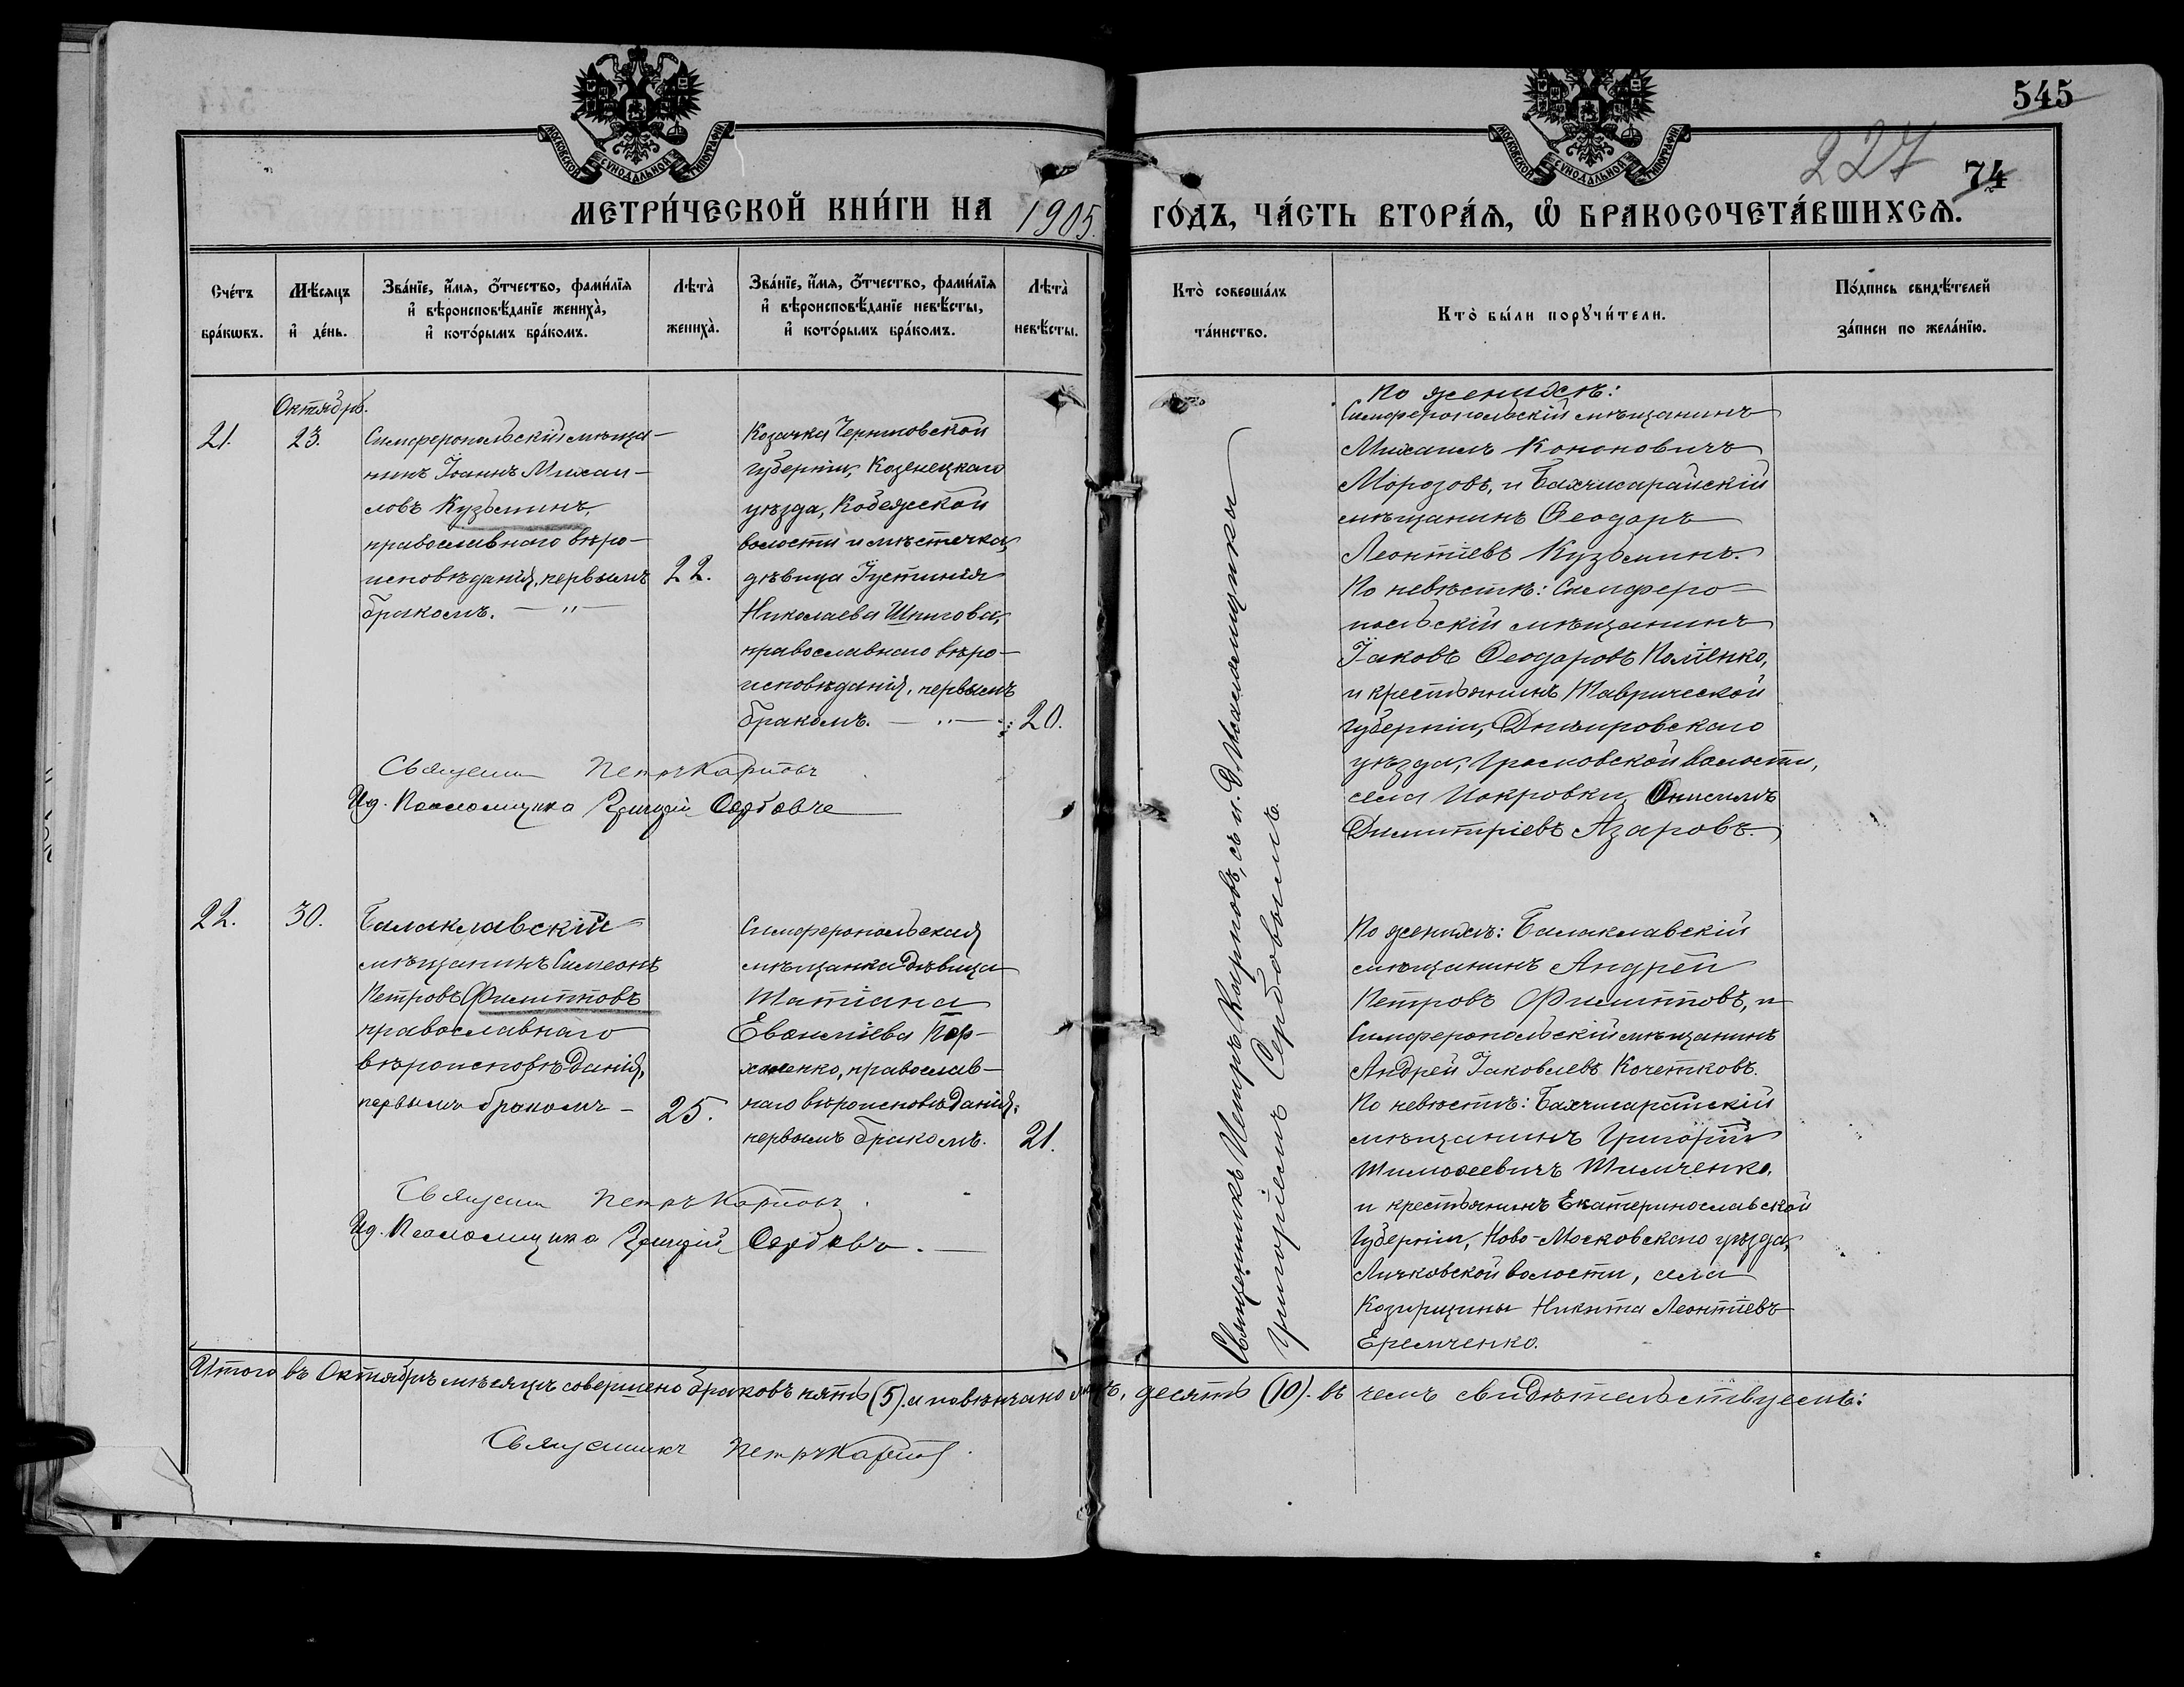 545
227
74
МЕТРИ́ЧЕСКОЙ КНИ́ГИ НА 1905. ГО́ДЪ, ЧА́СТЬ ВТОРА́Я, Ѡ҆ БРАКОСОЧЕТА́ВШИХСЯ.
МОСКОВСКОЙ СѴНОДАЛЬНОЙ ТИПОГРАФІИ
МОСКОВСКОЙ СѴНОДАЛЬНОЙ ТИПОГРАФІИ
Сче́тъ
бра́кѡвъ.
Мѣ́сяцъ
и҆ де́нь.
Зва́нїе, и҆́мя, ѻ҆́тчество, фами́лїя
и҆ вѣроисповѣ́данїе жениха̀,
и҆ кото́рымъ бра́комъ.
Лѣта̀
жениха̀.
Зва́нїе, и҆́мя, ѻ҆́тчество, фами́лїя
и҆ вѣроисповѣ́данїе невѣ́сты,
и҆ кото́рымъ бра́комъ.
Лѣта̀
невѣ́сты.
Кто̀ соверша́лъ
та́инство.
Кто̀ бы́ли порꙋчи́тели.
По́дпись свидѣ́телей
за́писи по жела́нїю.
21.
Октябрь.
23.
Симферопольскій мѣща-
нинъ Іоаннъ Михаи-
ловъ Кузьминъ,
православнаго вѣро-
исповѣданія, первымъ
бракомъ. — " —
22.
Козачка Черниговской
губерніи, Козелецкаго
уѣзда, Кобежской
волости и мѣстечка,
дѣвица Іустинія
Николаева Шпигова,
православнаго вѣро-
исповѣданія, первымъ
бракомъ. — " —
20.
Священн Петръ Карповъ
Ид. Псаломщика Григорій Сербовъ
По женихѣ:
Симферопольскій мѣщанинъ
Михаилъ Кононовичъ
Морозовъ, и Бахчисарайскій
мѣщанинъ Ѳеодоръ
Леонтіевъ Кузьминъ.
По невѣстѣ: Симферо-
польскій мѣщанинъ
Іаковъ Ѳеодоровъ
и крестьянинъ Таврической
губерніи, Днѣпровскаго
уѣзда, волости,
села Покровки, Онисимъ
Димитріевъ Азаровъ.
Священникъ Петръ Карповъ, съ и. д. псаломщика
Григоріемъ Сербовымъ.
22.
30.
Балаклавскій
мѣщанинъ Симеонъ
Петровъ Филипповъ
православнаго
вѣроисповѣданія,
первымъ бракомъ —
25.
Симферопольская
мѣщанка дѣвица
Татіана
православ-
наго вѣроисповѣданія,
первымъ бракомъ.
21.
Священн Петръ Карповъ.
Ид. Псаломщика Григорій Сербовъ. —
По женихѣ: Балаклавскій
мѣщанинъ Андрей
Петровъ Филипповъ, и
Симферопольскій мѣщанинъ
Андрей Іаковлевъ Кочетковъ.
По невѣстѣ: Бахчисарайскій
мѣщанинъ Григорій
Тимоѳеевичъ Тимченко,
и крестьянинъ Екатеринославской
губерніи, Ново-Московскаго уѣзда,
Личковской волости, села
Козирщины Никита Леонтіевъ
Еремченко.
Итого въ Октябрѣ мѣсяцѣ совершено браковъ пять (5). и повѣнчано лицъ, десять (10). въ чемъ свидѣтельствуемъ:
Священникъ Петръ Карповъ.